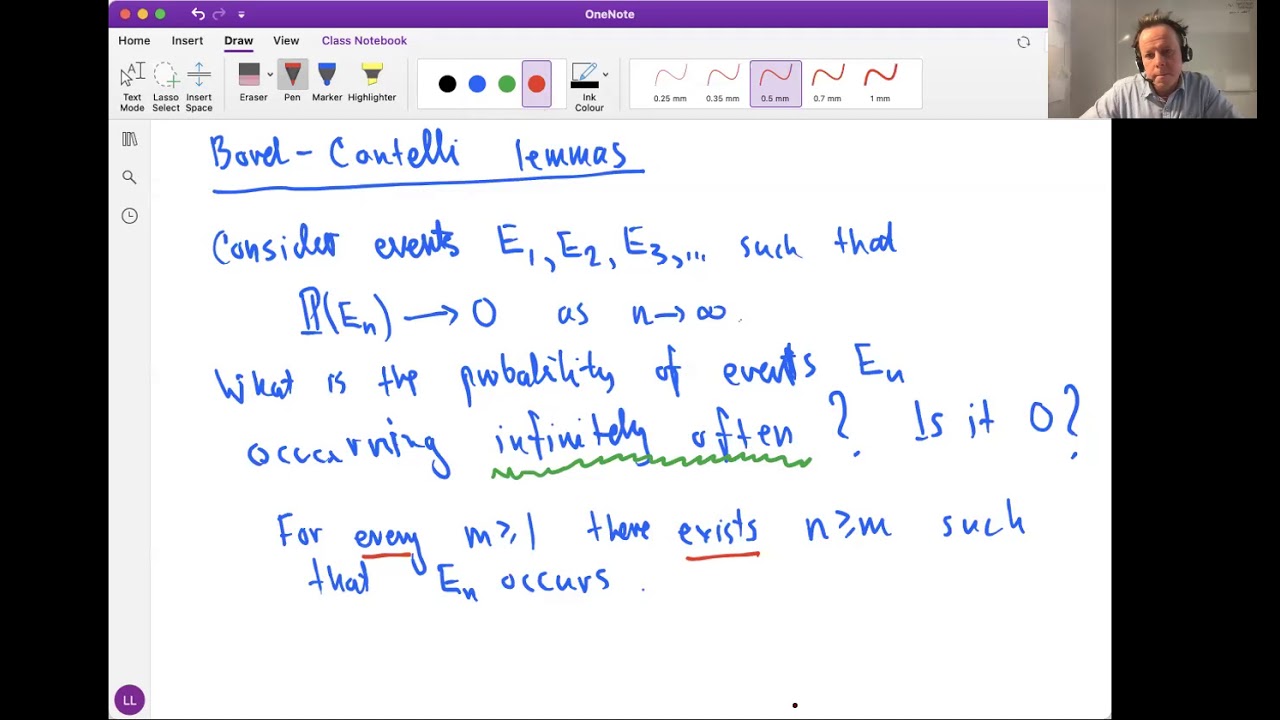 OneNote
Home Insert Draw View Class Notebook
Text Mode Lasso Select Insert Space Eraser Pen Marker Highlighter Ink Colour 0.25 mm 0.35 mm 0.5 mm 0.7 mm 1 mm
Borel-Cantelli lemmas
Consider events E₁, E₂, E₃,... such that
ℙ(Eₙ) → 0 as n → ∞.
What is the probability of events Eₙ
occurring infinitely often? Is it 0?
For every m ≥ 1 there exists n ≥ m such
that Eₙ occurs.
LL